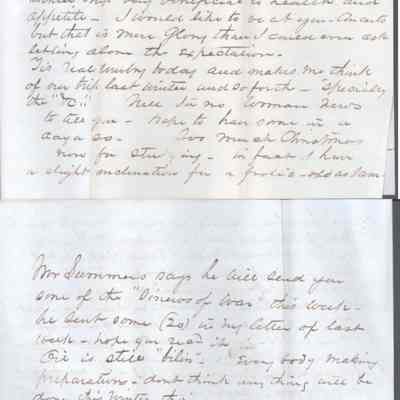 very beneficial to health and
appetite - I would like to be at your
but that is more Glory than I could even ask
letting alone the expectation.
Tis real wintry today and makes me think
of our trip last winter and so forth - Specially
the
Well I've no Woman News
to tell you - hope to have some in a
days so. Too much Christmas
now for studying - in fact I have
a slight inclination for a frolic - old as I am
Mr Summers says he will send you
some of the "Sinews of War" this week -
he sent some (20) in my letter of last
week - hope you rec'd it
is still "bilin". Every body making
preparations - dont think any thing will be
done this Winter